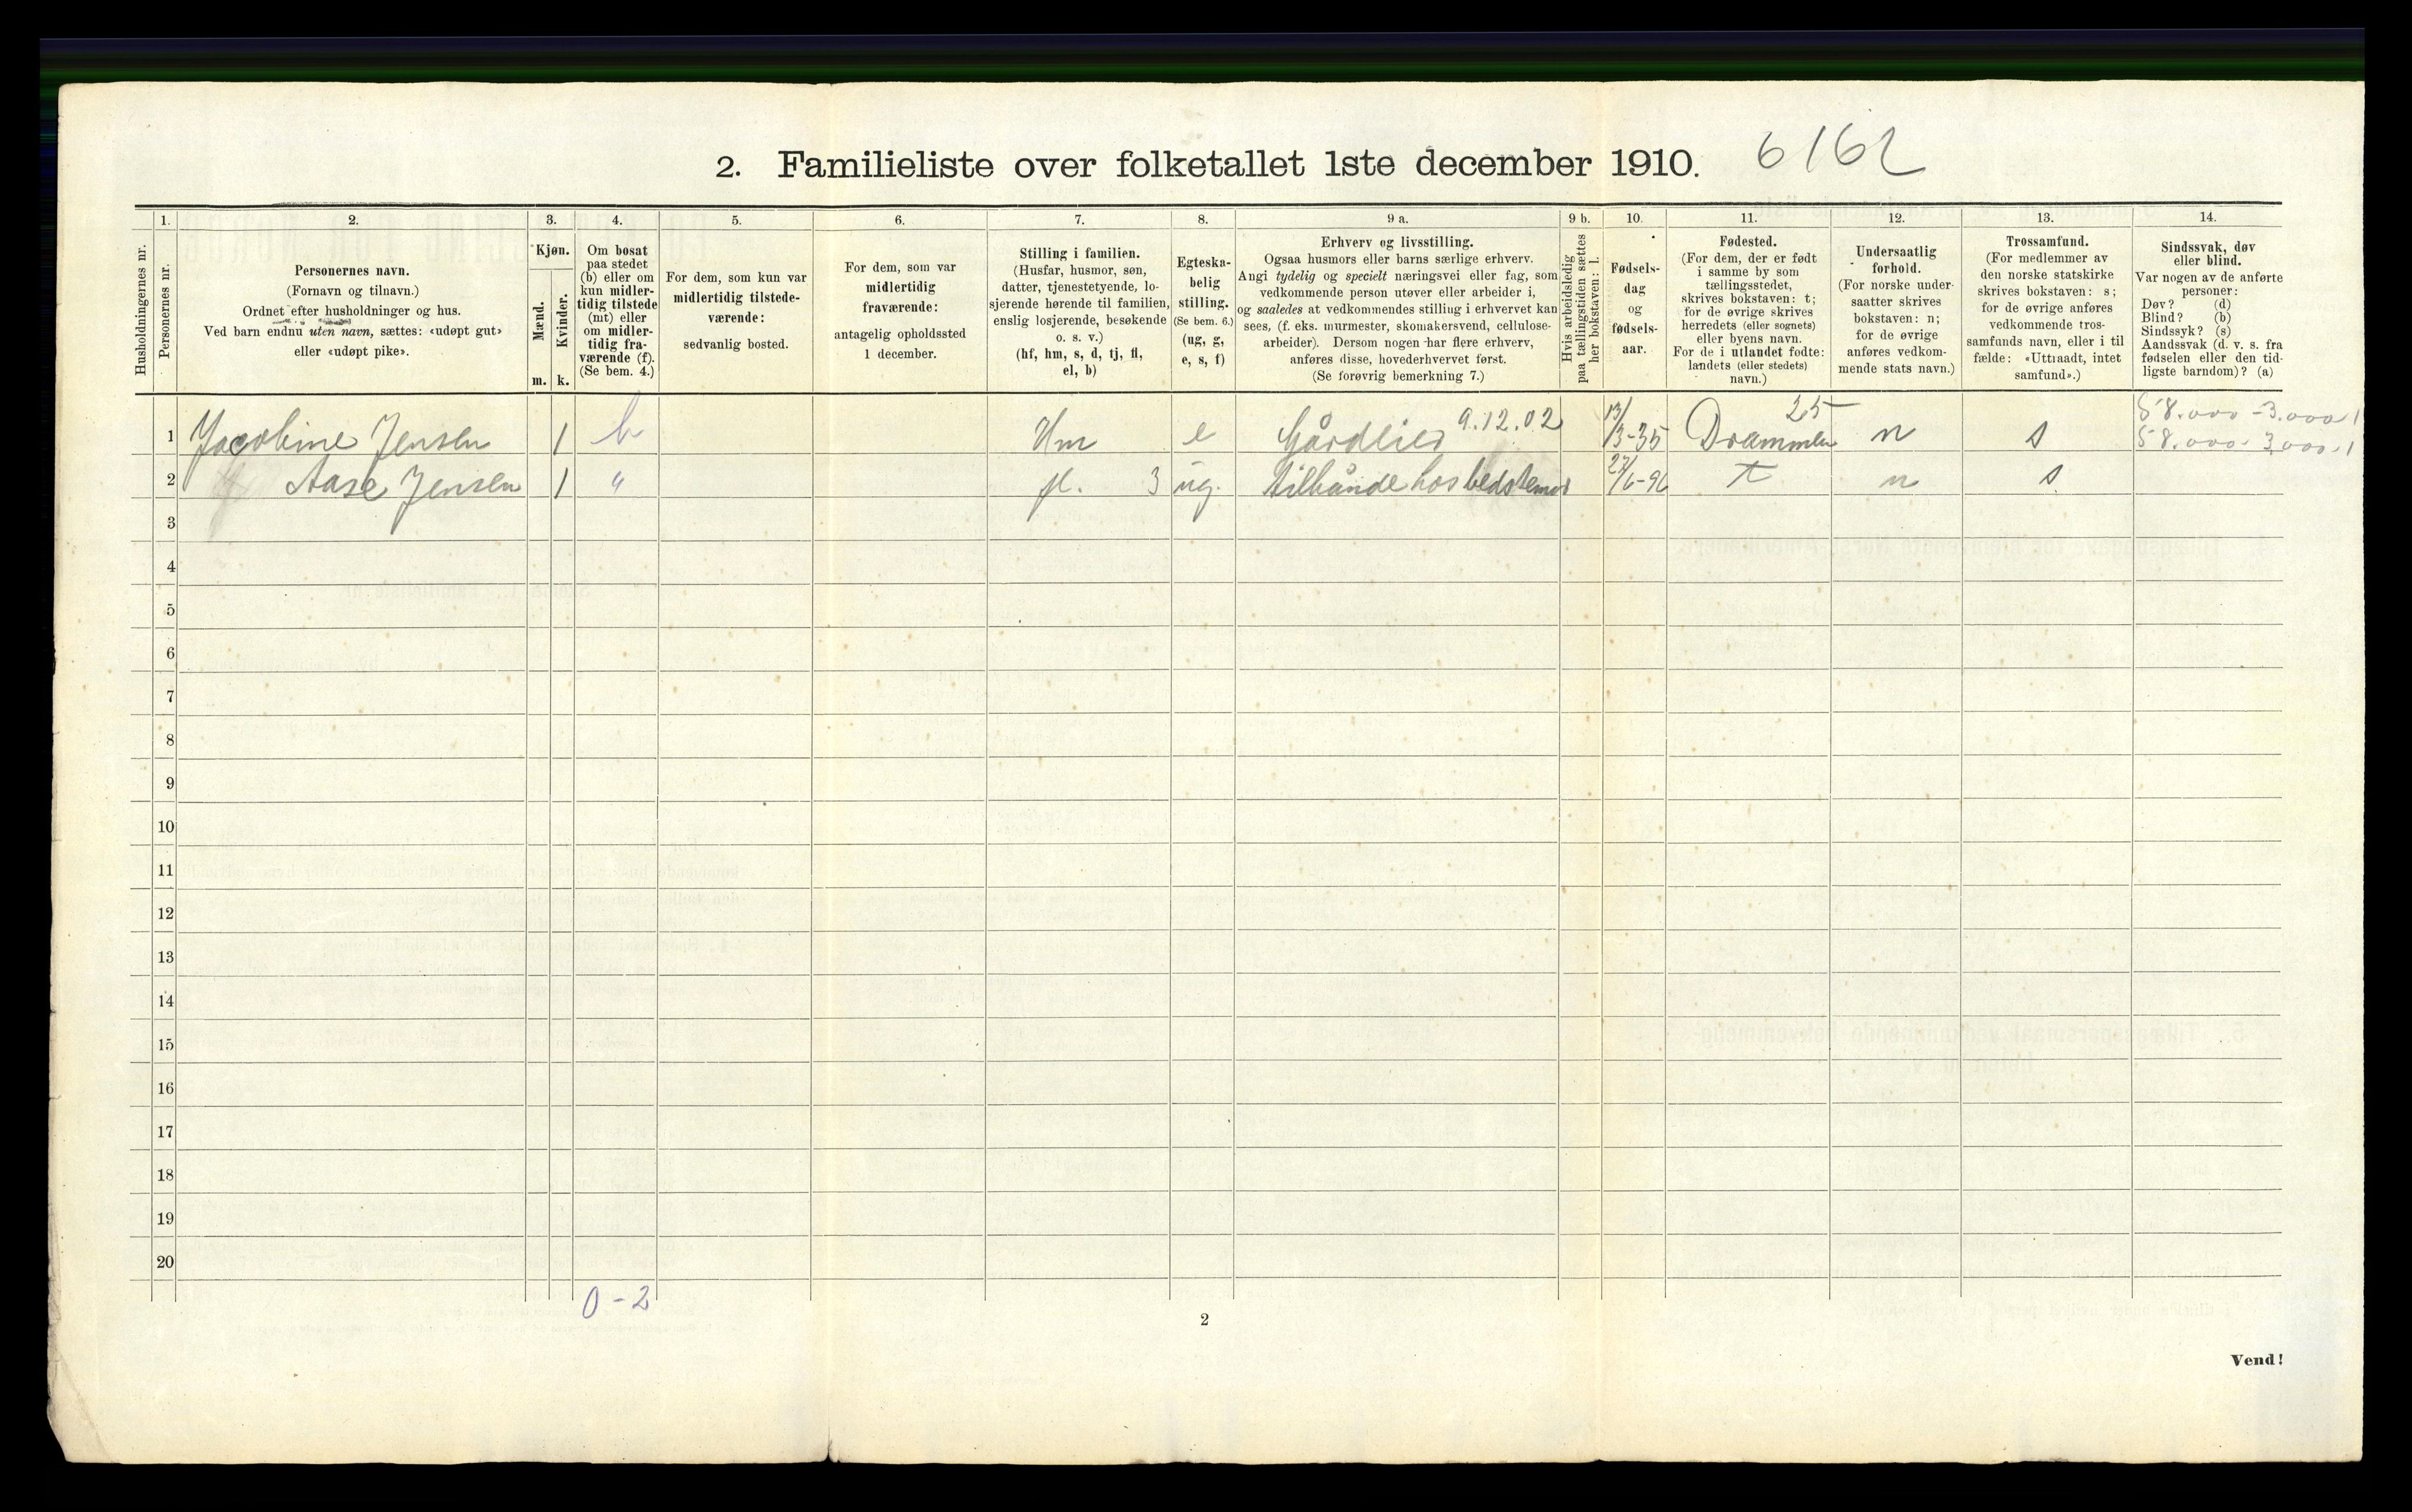 2. Familieliste over folketallet 1ste december 1910. 6162
Husholdningernes nr.
1.
Personernes nr.
2.
Personernes navn.
(Fornavn og tilnavn.)
Ordnet efter husholdninger og hus.
Ved barn endnu uten navn, sættes: «udøpt gut»
eller «udøpt pike».
3.
Kjøn.
Mænd.
m.
Kvinder.
k.
4.
Om bosat
paa stedet
(b) eller om
kun midler-
tidig tilstede
(mt) eller
om midler-
tidig fra-
værende (f).
(Se bem. 4.)
5.
For dem, som kun var
midlertidig tilstede-
værende:
sedvanlig bosted.
6.
For dem, som var
midlertidig
fraværende:
antagelig opholdssted
1 december.
7.
Stilling i familien.
(Husfar, husmor, søn,
datter, tjenestetyende, lo-
sjerende hørende til familien,
enslig losjerende, besøkende
o. s. v.)
(hf, hm, s, d, tj, fl,
el, b)
8.
Egteska-
belig
stilling.
(Se bem. 6.)
(ug, g,
e, s, f)
9 a.
Erhverv og livsstilling.
Ogsaa husmors eller barns særlige erhverv.
Angi tydelig og specielt næringsvei eller fag, som
vedkommende person utøver eller arbeider i,
og saaledes at vedkommendes stilling i erhvervet kan
sees, (f. eks. murmester, skomakersvend, cellulose-
arbeider). Dersom nogen har flere erhverv,
anføres disse, hovederhvervet først.
(Se forøvrig bemerkning 7.)
9 b.
Hvis arbeidsledig
paa tællingstiden sættes
her bokstaven: l.
10.
Fødsels-
dag
og
fødsels-
aar.
11.
Fødested.
(For dem, der er født
i samme by som
tællingsstedet,
skrives bokstaven: t;
for de øvrige skrives
herredets (eller sognets)
eller byens navn.
For de i utlandet fødte:
landets (eller stedets)
navn.)
12.
Undersaatlig
forhold.
(For norske under-
saatter skrives
bokstaven: n;
for de øvrige
anføres vedkom-
mende stats navn.)
13.
Trossamfund.
(For medlemmer av
den norske statskirke
skrives bokstaven: s;
for de øvrige anføres
vedkommende tros-
samfunds navn, eller i til
fælde: «Uttraadt, intet
samfund».)
14.
Sindssvak, døv
eller blind.
Var nogen av de anførte
personer:
Døv? (d)
Blind? (b)
Sindssyk? (s)
Aandssvak (d. v. s. fra
fødselen eller den tid-
ligste barndom)? (a)
9.12.02 25 58.000 - 3.000 1
1 Jacobine Jensen 1 b Hm e Gårdeier 13/3-35 Drammen n s 58.000 - 3,000 . 1
2 Aase Jensen 1 " fl. 3 ug. tilhånde hos bedstemor 27/6-96 t n s
3
4
5
6
7
8
9
10
11
12
13
14
15
16
17
18
19
20
0 - 2
2
Vend!